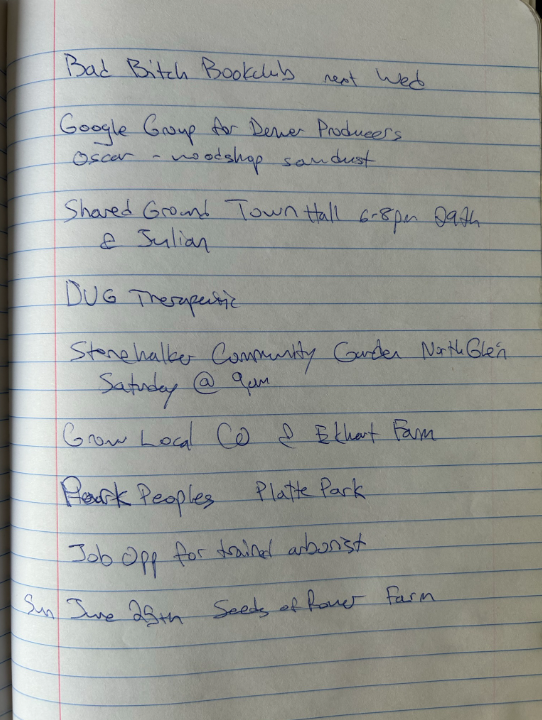 Bad Bitch Bookclub next Wed
Google Group for Denver Producers
Oscar - woodshop sawdust
Shared Ground Town Hall 6-8pm 29th
& Julian
DUG Therapeutic
Community Garden NorthGlen
Saturday @ 9am
Grow Local CO & Ekhart Farm
Peoples Platte Park
Job Opp for trained arborist
Sun June 25th Seeds of Power Farm